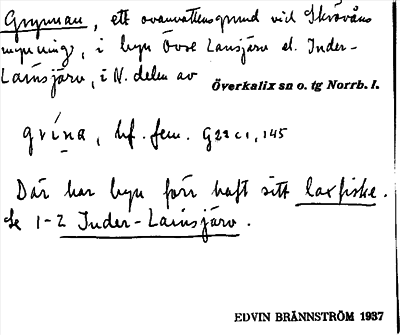 Grynnan, ett ovanvattensgrund vid Skrövåns
mynning, i byn Övre Lansjärv el. Inder-
Lainsjärv, i N. delen av
Överkalix sn o. tg Norrb. l.
grína, bf. fem. G22c1, 145
Där har byn förr haft sitt laxfiske.
Se 1-2 Inder-Lainsjärv.
EDVIN BRÄNNSTRÖM 1937